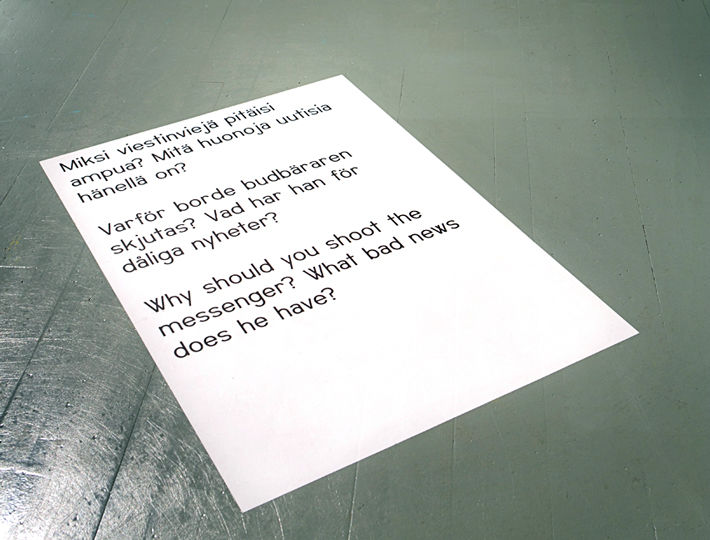 Miksi viestinviejä pitäisi
ampua? Mitä huonoja uutisia
hänellä on?
Varför borde budbäraren
skjutas? Vad har han för
dåliga nyheter?
Why should you shoot the
messenger? What bad news
does he have?